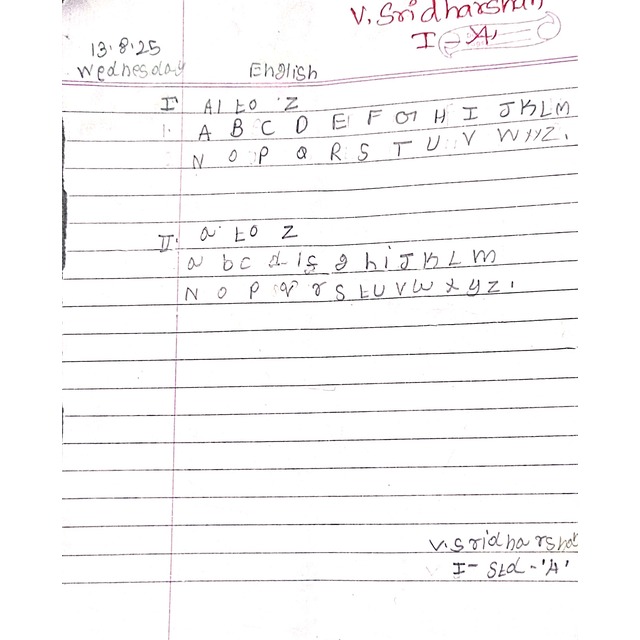 V. Sridharshan
I - 'A'
13.8.25
Wednesday
English
I. A to Z
1. A B C D E F G H I J K L M
N O P Q R S T U V W X Y Z.
II. a to z
a b c d e f g h i J K L m
N O P q r S t U V W x y z.
V. Sridharsha
I - Std - 'A'